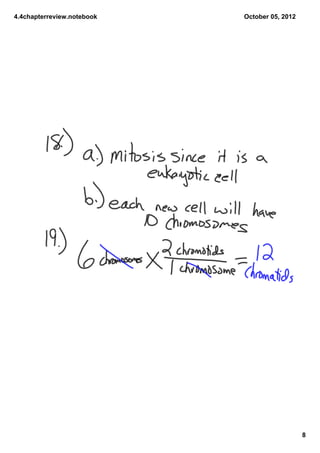 4.4chapterreview.notebook
October 05, 2012
18.) a.) mitosis since it is a
eukayotic cell
b.) each new cell will have
10 chromosomes
19.) 6 chromosomes X 2 chromatids / 1 chromosome = 12 chromatids
8